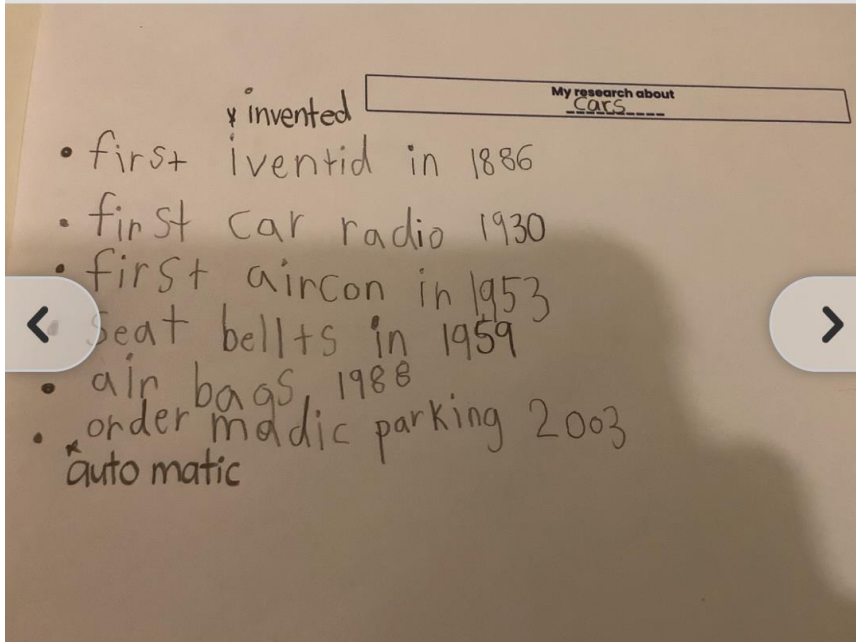 My research about
cars
* invented
• first iventid in 1886
• first car radio 1930
• first aircon in 1953
• seat bellts in 1959
• air bags 1988
• order madic parking 2003
* auto matic